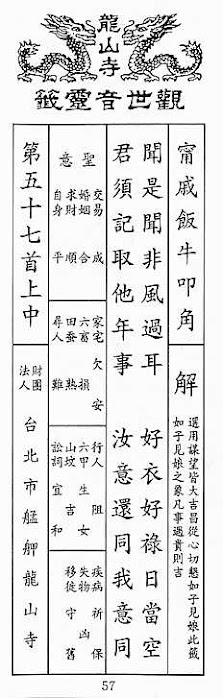 龍山寺
觀世音靈籤
甯戚飯牛叩角
解
選用謀望皆大吉昌從心切懇如子見娘此籤
如子見娘之象凡事遇貴則吉
聞是聞非風過耳 好衣好祿日當空
君須記取他年事 汝意還同我意同
聖意
交易 成
婚姻 合
求財 順
自身 平
家宅 欠安
六畜 損
田蚕 熟
尋人 難
行人 阻
六甲 生女
山坟 吉
訟詞 宜和
疾病 祈保
失物 凶
移徙 守舊
第五十七首上中
財團法人
台北市艋舺龍山寺
57